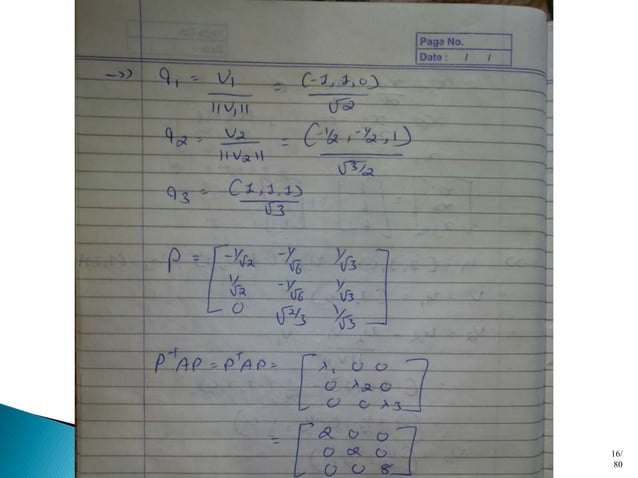 Page No.
Date : / /
->> q₁ = V₁/||V₁|| = (-1,1,0)/√2
q₂ = V₂/||V₂|| = (-1/2, -1/2, 1)/√3/2
q₃ = (1,1,1)/√3
P = [ -1/√2 -1/√6 1/√3
1/√2 -1/√6 1/√3
0 √2/3 1/√3 ]
P⁻¹AP = PᵀAP = [ λ₁ 0 0
0 λ2 0
0 0 λ3 ]
= [ 2 0 0
0 2 0
0 0 8 ]
16/
80